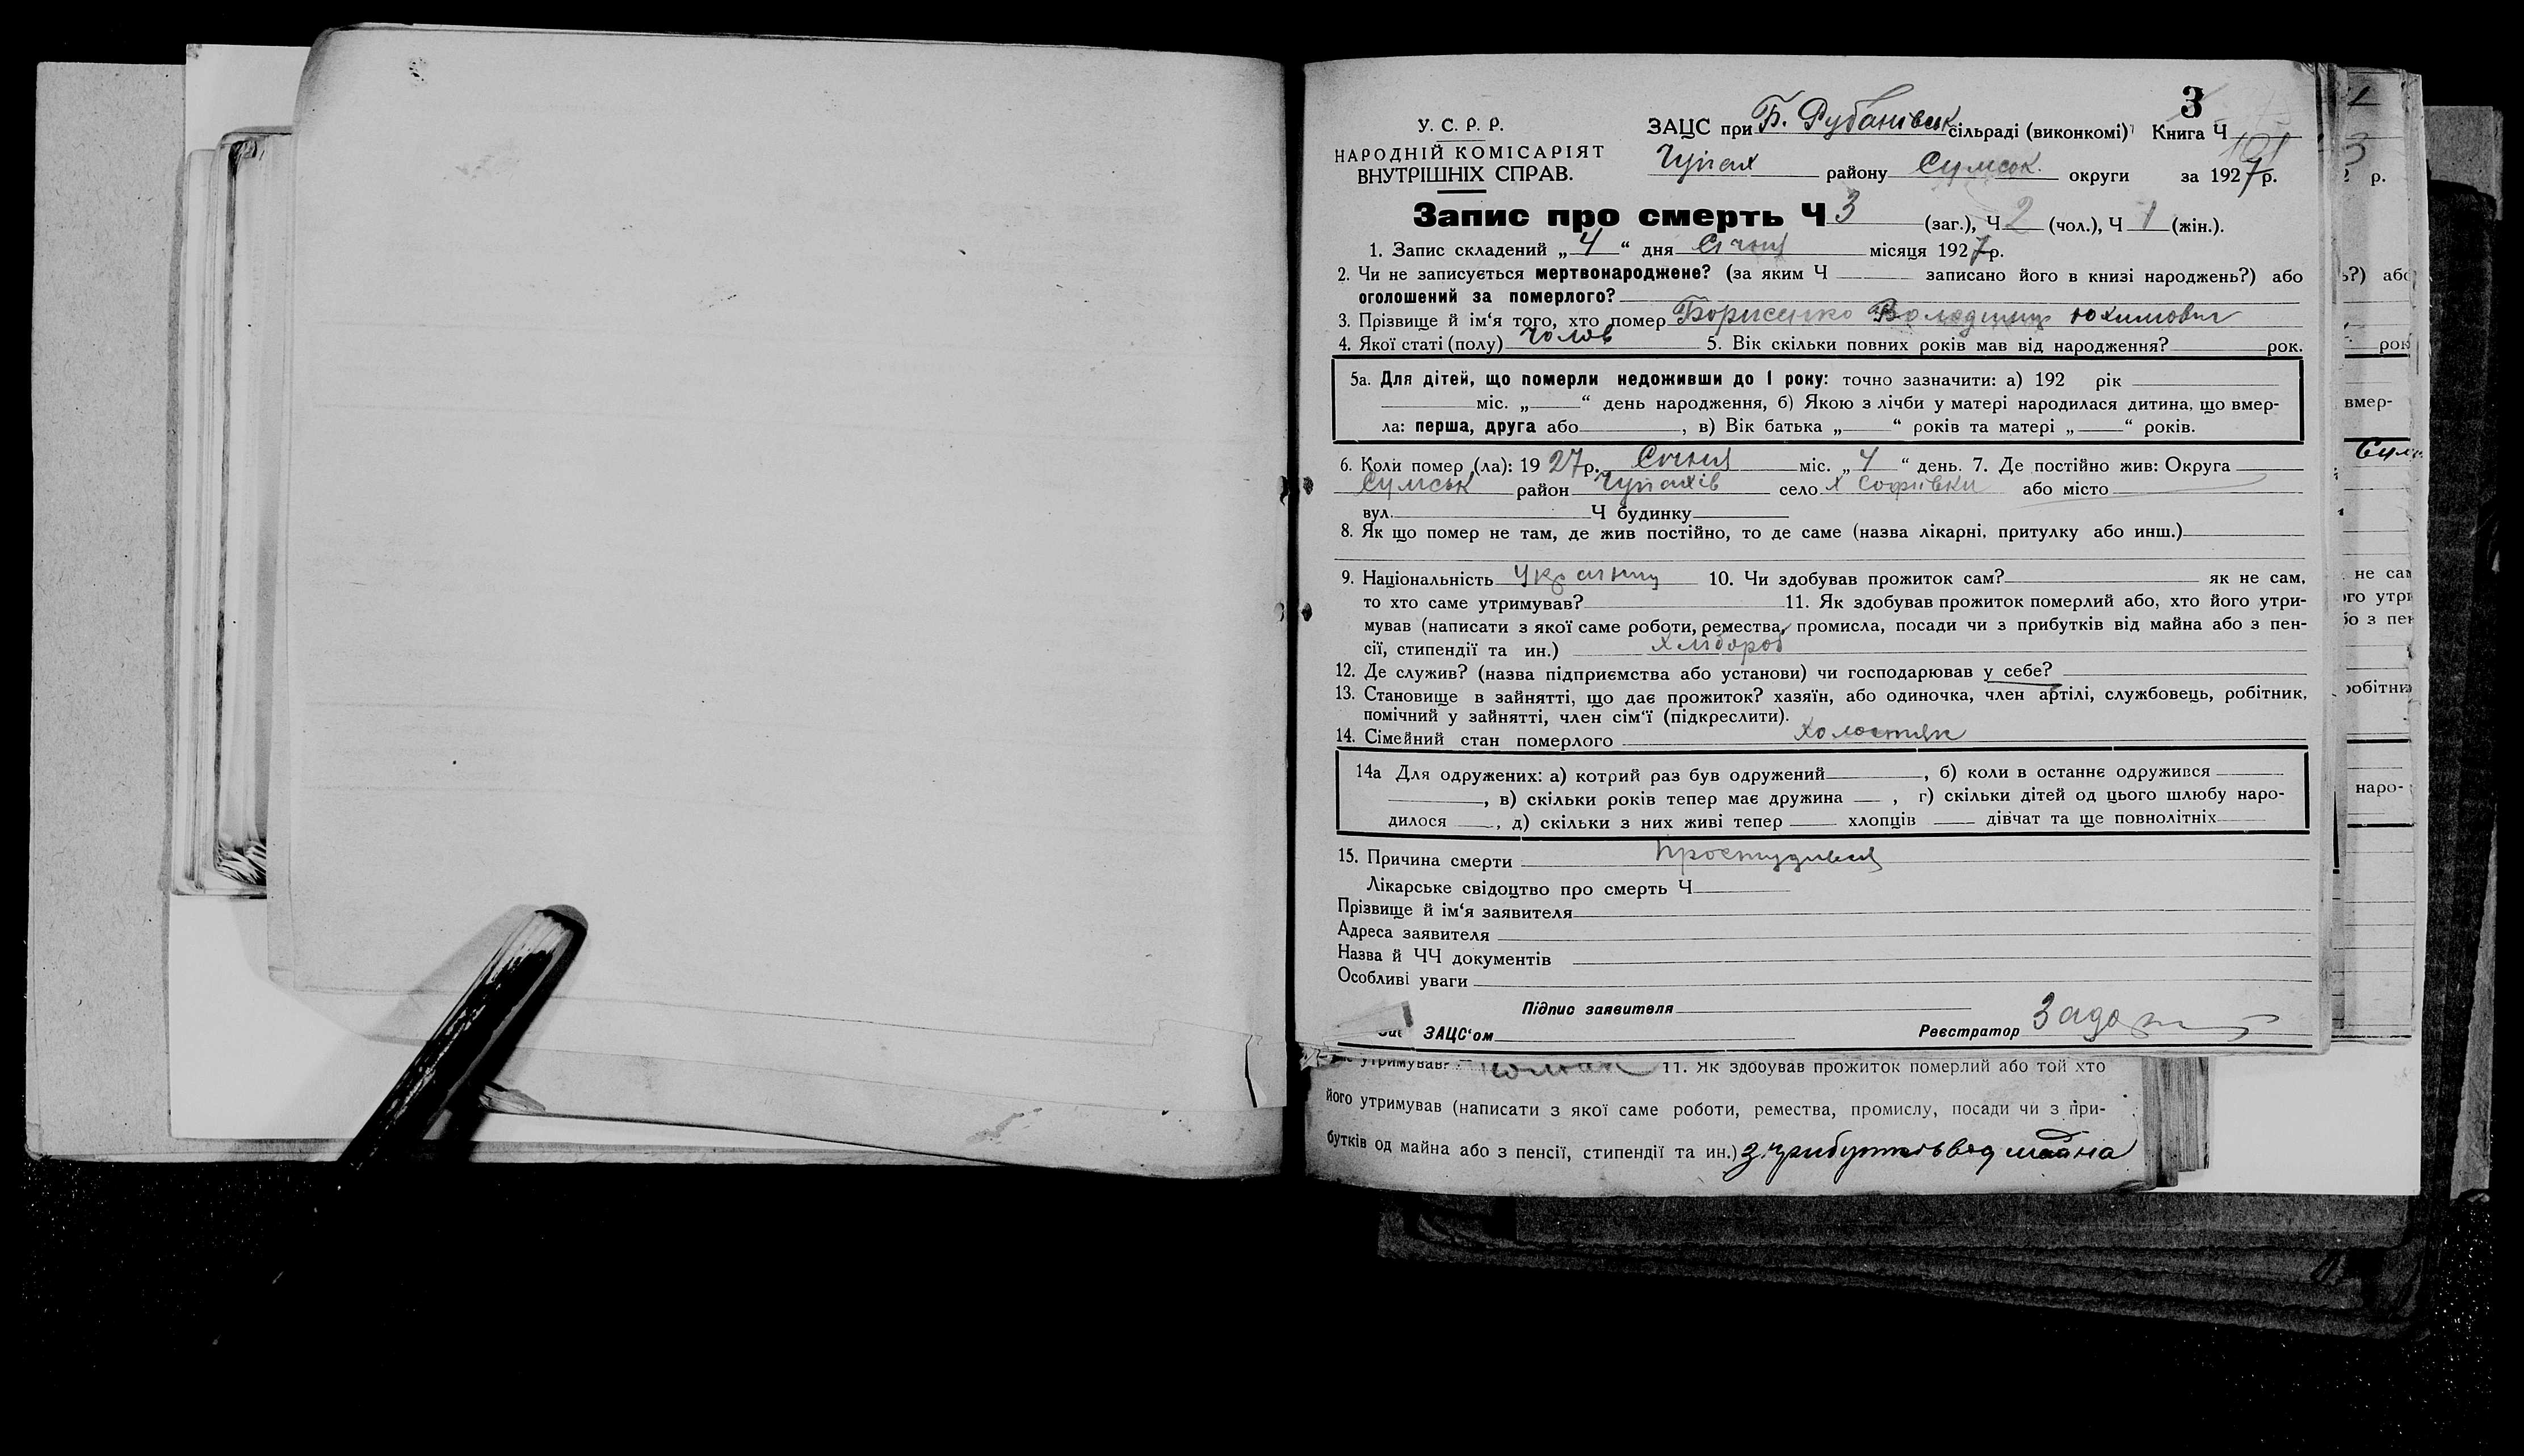 3
У. С. Р. Р.
НАРОДНІЙ КОМІСАРІЯТ
ВНУТРІШНІХ СПРАВ.
ЗАЦС при Б. Рубанівськ сільраді (виконкомі) Книга Ч 101
Чупах району Сумськ. округи за 1927 р.
Запис про смерть Ч 3 (заг.), Ч 2 (чол.), Ч 1 (жін.).
1. Запис складений „ 4 “ дня Січня місяця 1927 р.
2. Чи не записується мертвонароджене? (за яким Ч записано його в книзі народжень?) або
оголошений за померлого?
3. Прізвище й ім‘я того, хто помер Борисенко Володимир Юхимович
4. Якої статі (полу) чолов 5. Вік скільки повних років мав від народження? рок.
5а. Для дітей, що померли недоживши до 1 року: точно зазначити: а) 192 рік
міс. „ “ день народження, б) Якою з лічби у матері народилася дитина, що вмер-
ла: перша, друга або , в) Вік батька „ “ років та матері „ “ років.
6. Коли помер (ла): 1927 р. Січня міс. „ 4 “ день. 7. Де постійно жив: Округа
Сумськ район Чупахів село х Софіївки або місто
вул. Ч будинку
8. Як що помер не там, де жив постійно, то де саме (назва лікарні, притулку або инш.)
9. Національність Українц 10. Чи здобував прожиток сам? як не сам,
то хто саме утримував? 11. Як здобував прожиток померлий або, хто його утри-
мував (написати з якої саме роботи, ремества, промисла, посади чи з прибутків від майна або з пен-
сії, стипендії та ин.) хлібороб
12. Де служив? (назва підприємства або установи) чи господарював у себе?
13. Становище в зайнятті, що дає прожиток? хазяїн, або одиночка, член артілі, службовець, робітник,
помічний у зайнятті, член сім‘ї (підкреслити).
14. Сімейний стан померлого холостяк
14а Для одружених: а) котрий раз був одружений , б) коли в останнє одружився
, в) скільки років тепер має дружина , г) скільки дітей од цього шлюбу наро-
дилося , д) скільки з них живі тепер хлопців дівчат та ще повнолітніх
15. Причина смерти простудився
Лікарське свідоцтво про смерть Ч
Прізвище й ім‘я заявителя
Адреса заявителя
Назва й ЧЧ документів
Особливі уваги
Підпис заявителя
ЗАЦС‘ом Реєстратор
утримував? 11. Як здобував прожиток померлий або той хто
його утримував (написати з якої саме роботи, ремества, промислу, посади чи з при-
бутків од майна або з пенсії, стипендії та ин.) з прибутків від майна
3
р.
ь?) або
рок
вмер-
не сам
ого утри
бо з пен
робітник
наро-